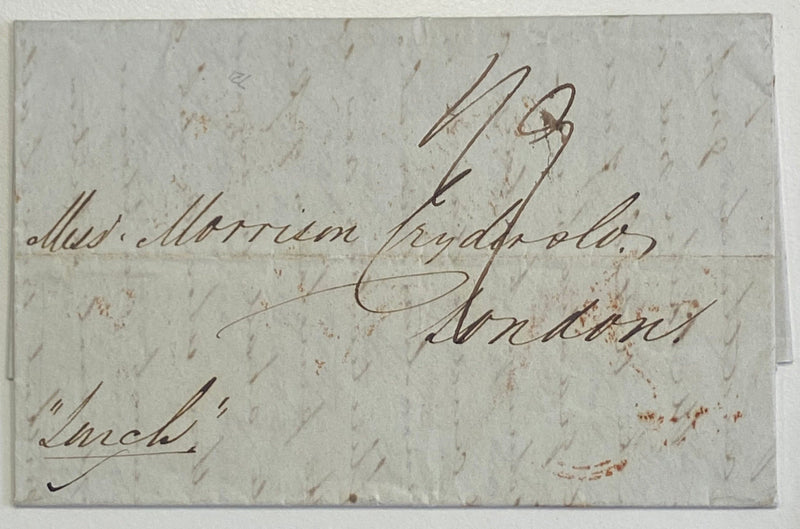 Mess. Morrison Cryder & Co.
London.
"Larch".